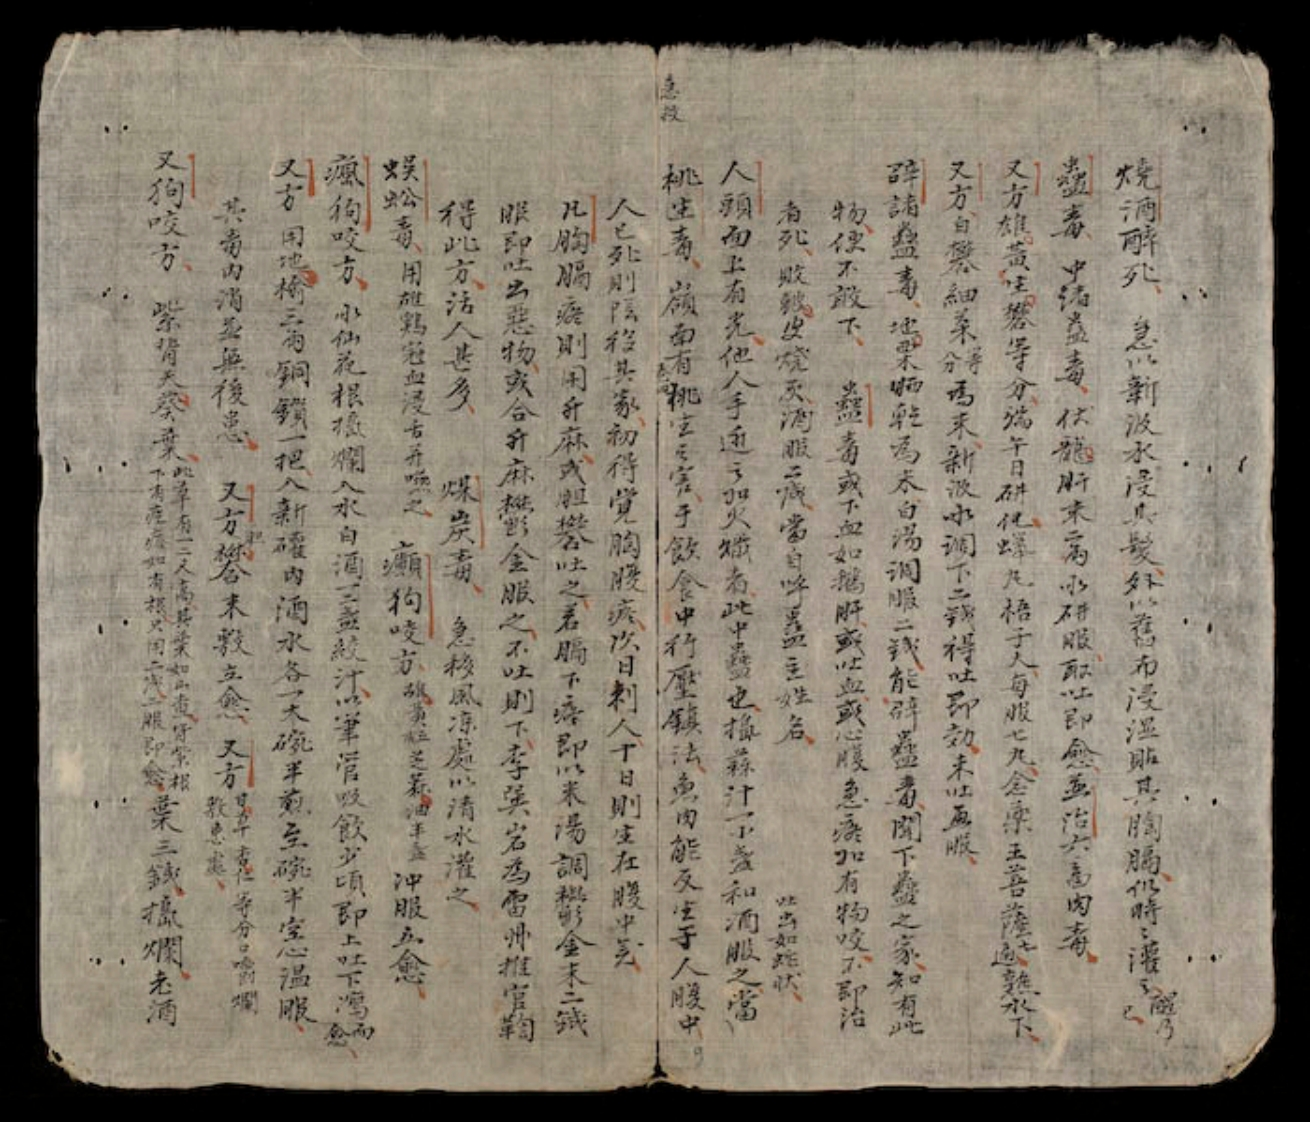 燒酒醉死 急以新汲水浸其髮外以舊布浸濕貼其胸膈仍時々灌之醒乃已
蠱毒 中諸蠱毒伏龍肝末二兩水研服取吐即愈並治六畜肉毒
又方雄黃生礬等分端午日研化蠟丸梧子大每服七丸念藥王菩薩七遍熟水下
又方白礬細茶等分為末新汲水調下二錢得吐即効未吐再服
辟諸蠱毒 地栗晒乾為末白湯調服二錢能辟蠱毒聞下蠱之家知有此
物便不敢下 蠱毒或下血如鵝肝或吐血或心腹急痛如有物咬不即治
者死敗皷皮燒灰酒服二錢當自呼蠱主姓名
人頭面上有光他人手近之如火熾者此中蠱也 蒜汁一小盞和酒服之當吐出如蛇狀
急救
桃生毒 嶺南有桃生之害于飲食中行壓鎮法魚肉能反生于人腹中
人已死則陰役其家初得覺胸腹疼次日刺人十日則生在腹中矣
凡胸膈疼則用升麻或胆礬吐之若膈下疼即以米湯調鬱金末二錢
服即吐出惡物或合升麻鬱金服之不吐則下李巽岩為雷州推官鞫
得此方活人甚多 煤炭毒 急移風凉處以清水灌之
蜈蚣毒 用雄鷄冠血浸舌并嚥之 癲狗咬方 雄黃 芝麻油半盞 沖服立愈
瘋狗咬方 水仙花根搗爛入水白酒一二盞絞汁以筆管吸飲少頃即上吐下瀉而愈
又方 用地榆三兩銅鎖一把入新礶內酒水各一大碗半煎至碗半空心温服
其毒內消並無後患 又方胆礬末敷立愈 又方 甘草 杏仁等分口嚼爛敷患處
又狗咬方 紫背天葵葉此草有一二尺高其葉如山查背紫根下有 如有根只用二錢一服即愈葉三錢搗爛老酒